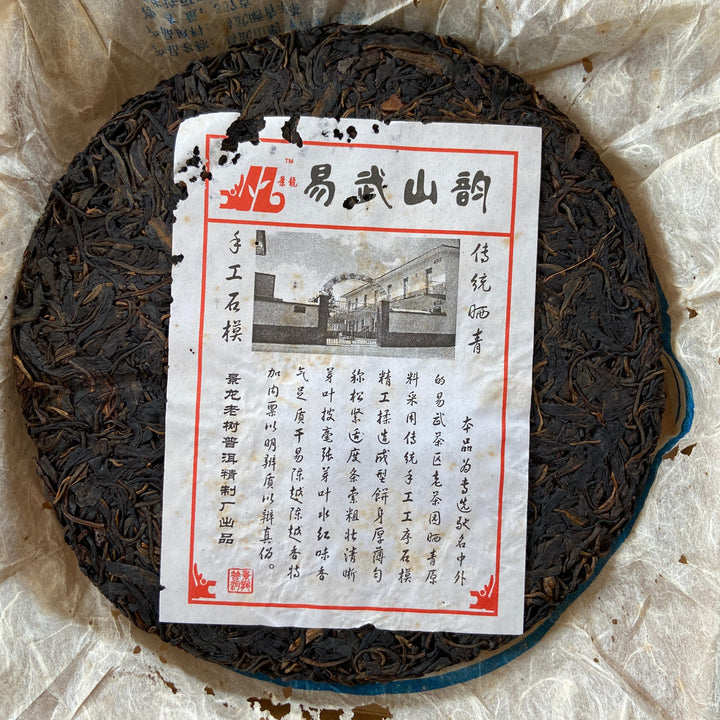 357克
™
景龍
易武山韵
传统晒青
手工石模
本品为专选驰名中外
的易武茶区老茶园晒青原
料采用传统手工工序石模
精工揉造成型餅身厚薄匀
称松紧适度条索粗壮清晰
芽叶披毫张芽叶水红味香
气足质干易陈越陈越香特
加内票以明辨质以辨真伪。
景龙老树普洱精制厂出品